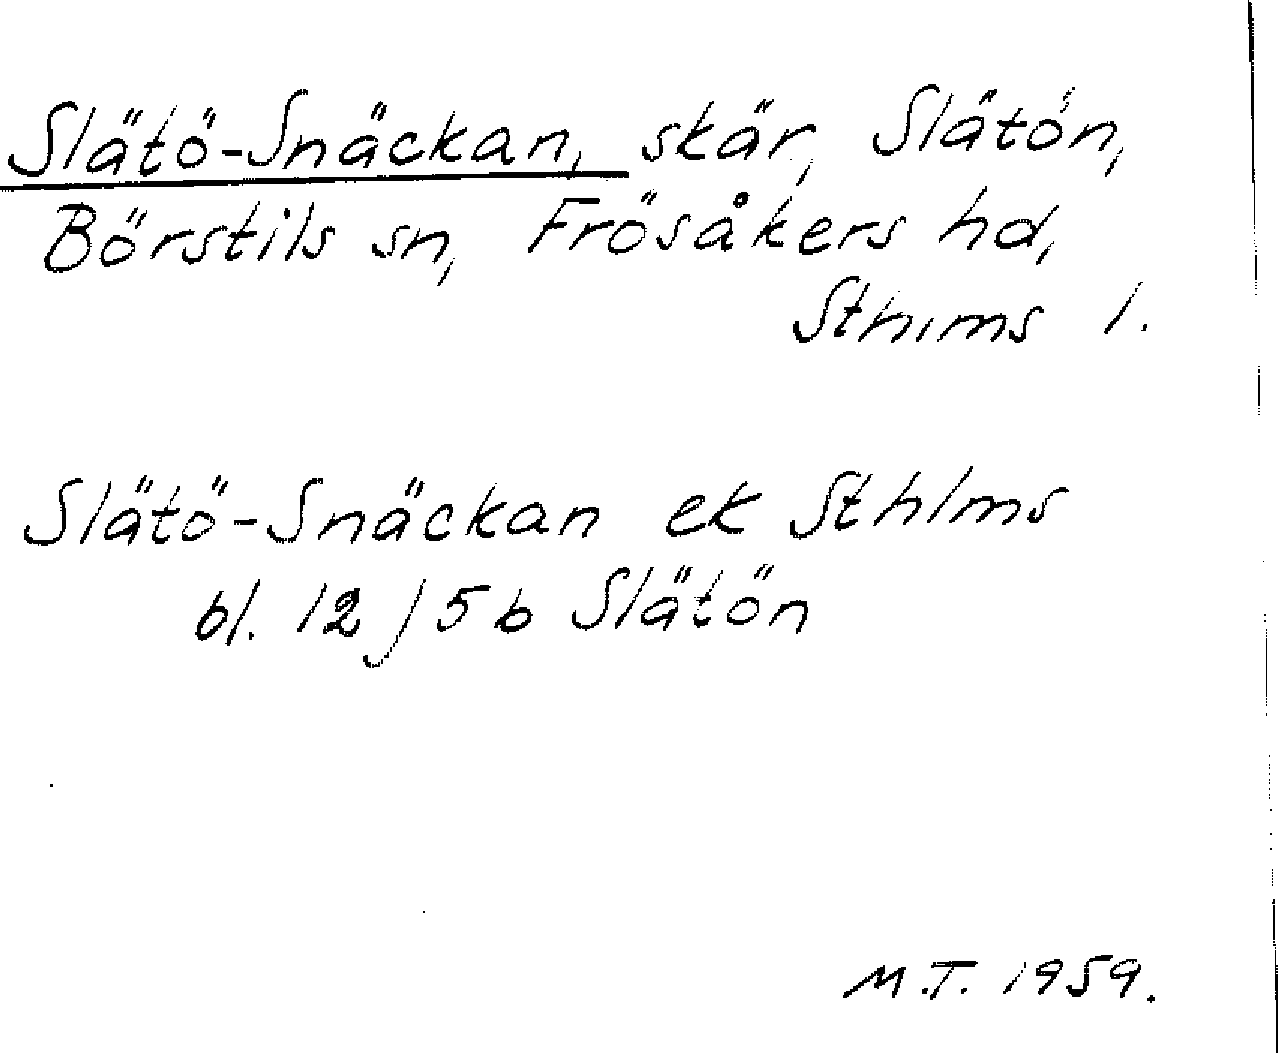 Slätö-Snäckan, skär, Slätön,
Börstils sn, Frösåkers hd,
Sthlms l.
Slätö-Snäckan ek Sthlms
bl. 12 j 5 b Slätön
M.T. 1959.